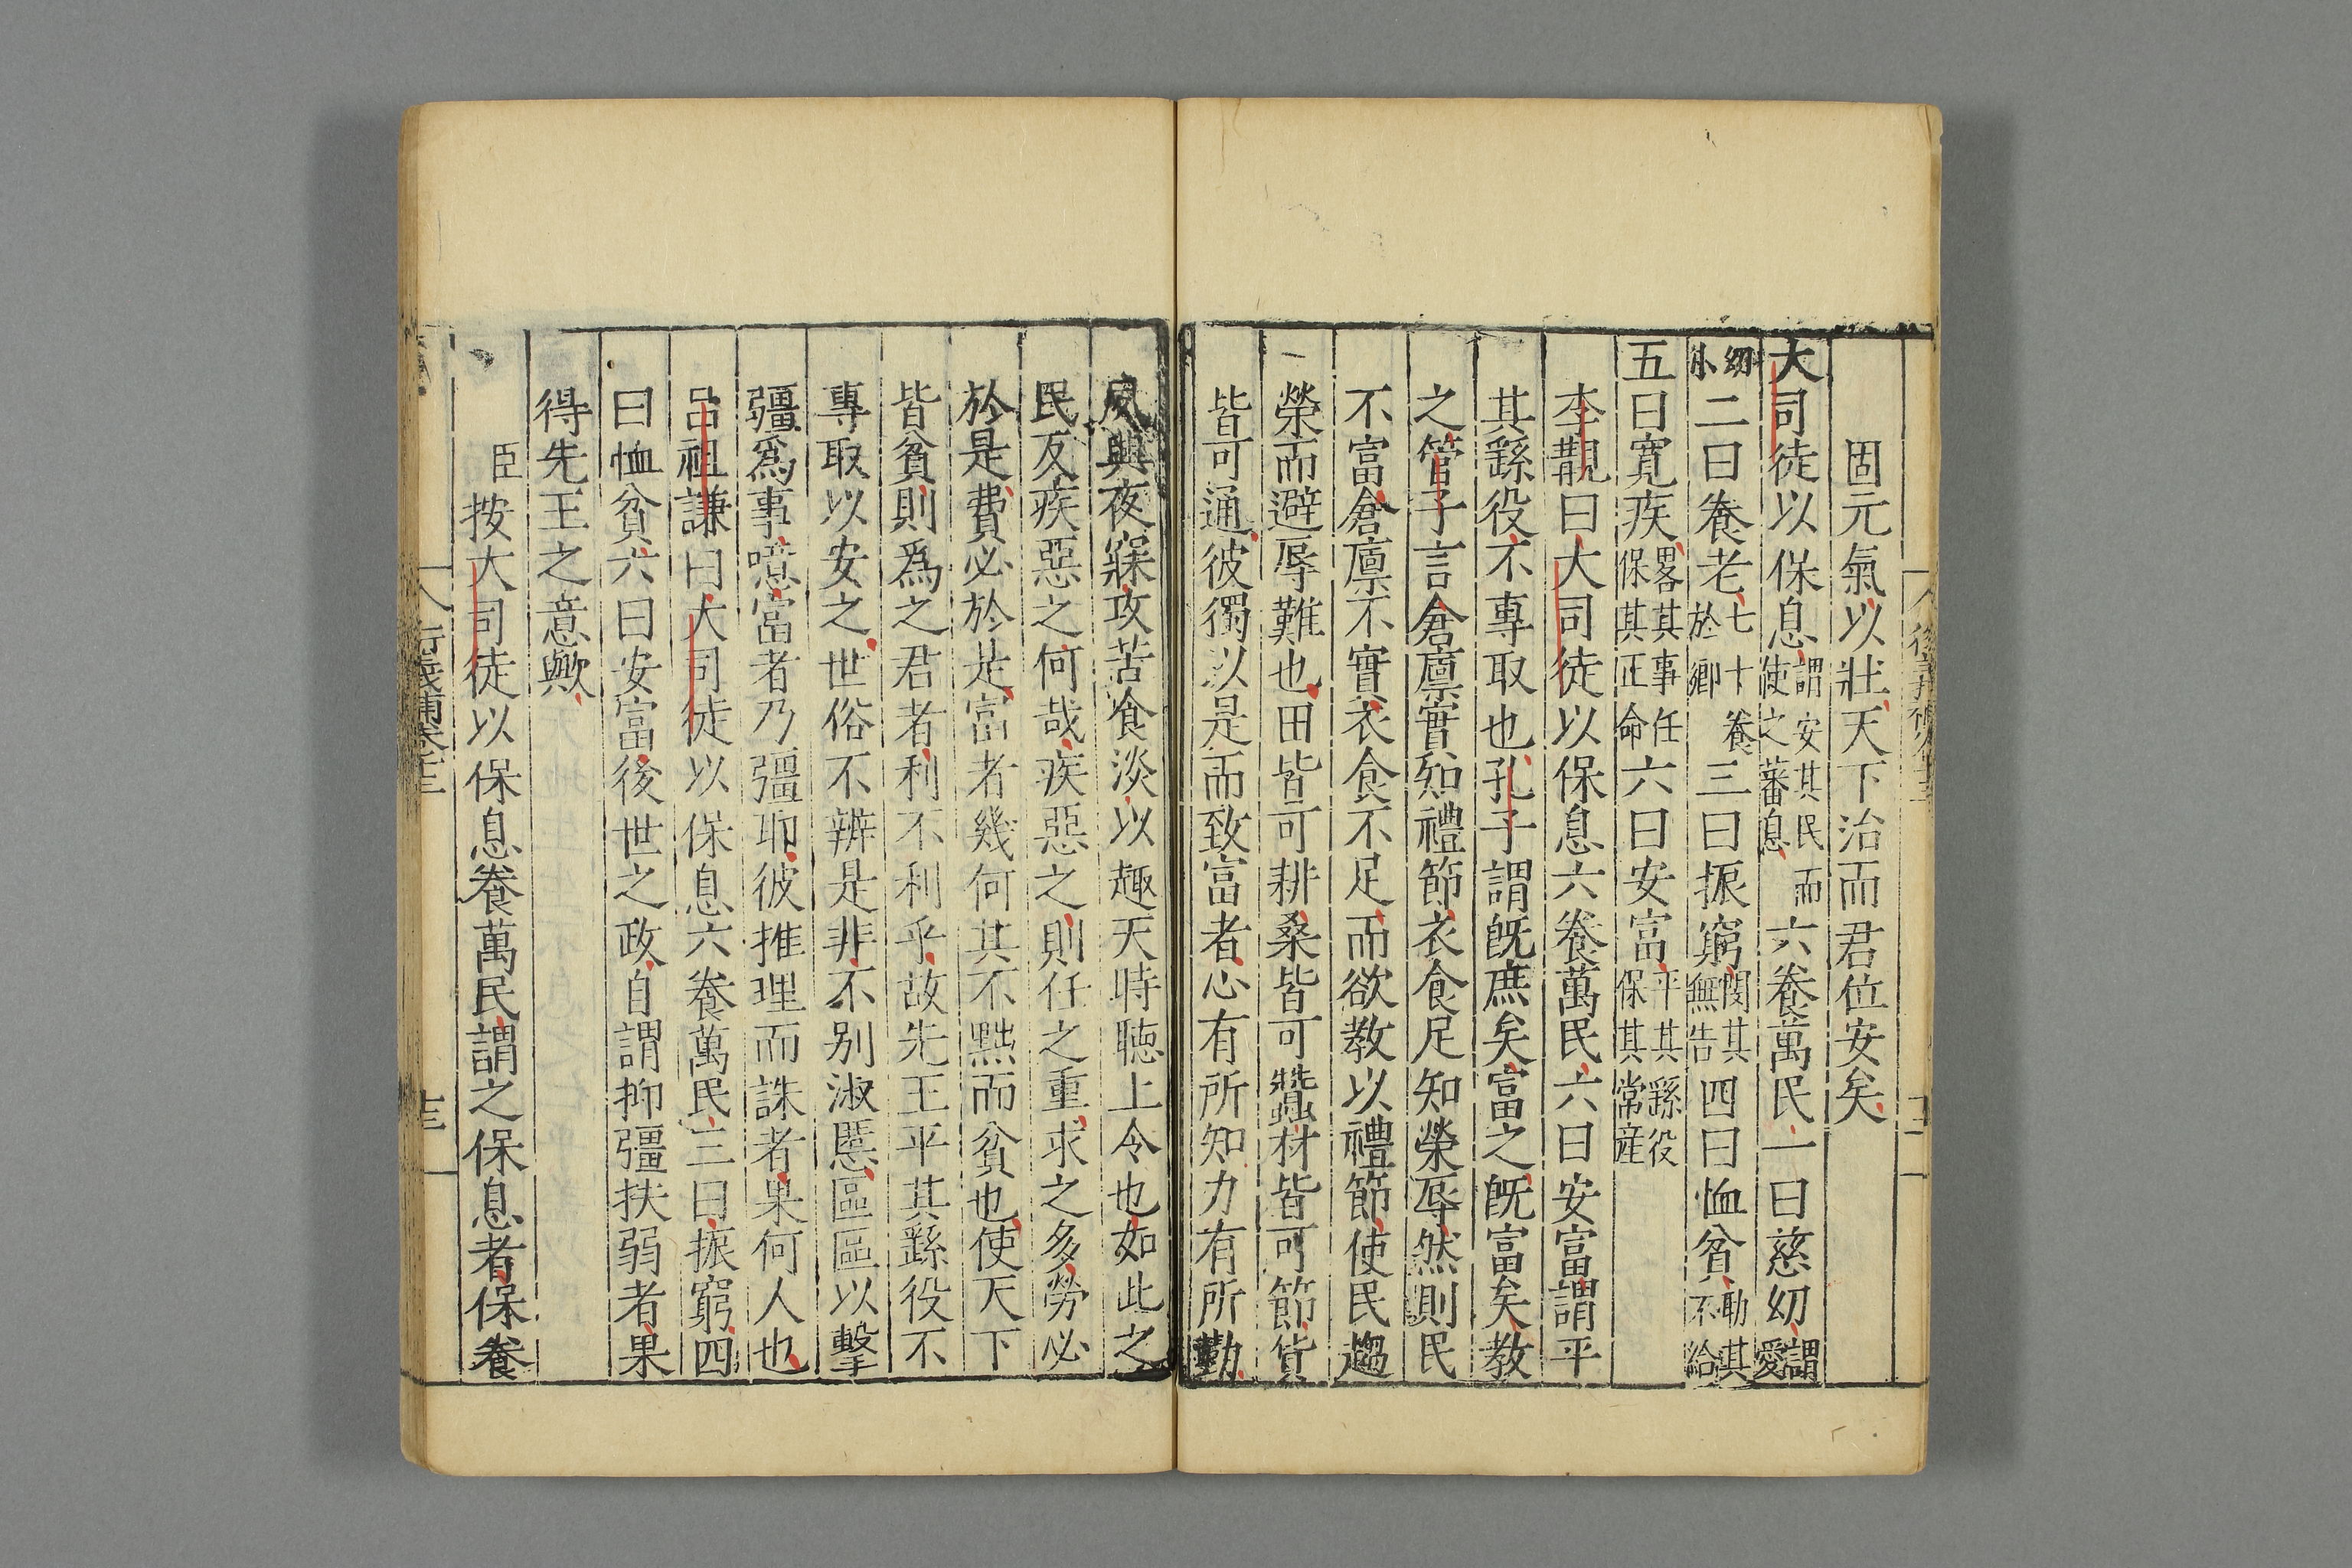 固元氣以壯天下治而君位安矣
大司徒以保息謂安其民而使之蕃息六養萬民一曰慈幼謂愛
幼小二曰養老七十養於鄉三曰振窮閔其無告四曰恤貧助其不給
五曰寬疾畧其事任保其正命六曰安富平其繇役保其常産
李覯曰大司徒以保息六養萬民六曰安富謂平
其繇役不專取也孔子謂旣庶矣富之旣富矣教
之管子言倉廩實知禮節衣食足知榮辱然則民
不富倉廩不實衣食不足而欲教以禮節使民趨
榮而避辱難也田皆可耕桑皆可蠶材皆可飭貨
皆可通彼獨以是而致富者心有所知力有所勤
夙興夜寐攻苦食淡以趣天時聽上令也如此之
民反疾惡之何哉疾惡之則任之重求之多勞必
於是費必於是富者幾何其不黜而貧也使天下
皆貧則爲之君者利不利乎故先王平其繇役不
專取以安之世俗不辨是非不別淑慝區區以擊
彊爲事噫富者乃彊耶彼推理而誅者果何人也
呂祖謙曰大司徒以保息六養萬民三曰振窮四
曰恤貧六曰安富後世之政自謂抑彊扶弱者果
得先王之意歟
臣按大司徒以保息養萬民謂之保息者保養